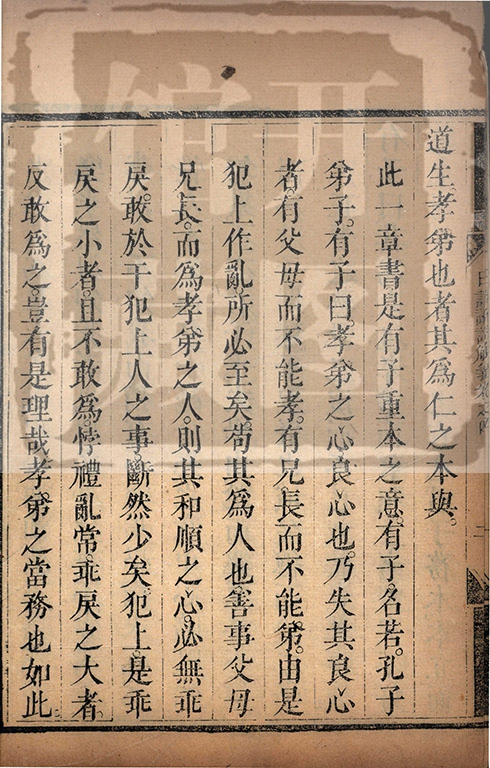 道生孝弟也者其爲仁之本與。
此一章書是有子重本之意。有子名若。孔子
弟子。有子曰。孝弟之心良心也。乃失其良心
者。有父母而不能孝。有兄長而不能弟。由是
犯上作亂所必至矣。苟其爲人也。善事父母
兄長。而爲孝弟之人。則其和順之心。必無乖
戾。敢於干犯上人之事。斷然少矣。犯上。是乖
戾之小者。且不敢爲。悖禮亂常。乖戾之大者。
反敢爲之。豈有是理哉孝弟之當務也如此